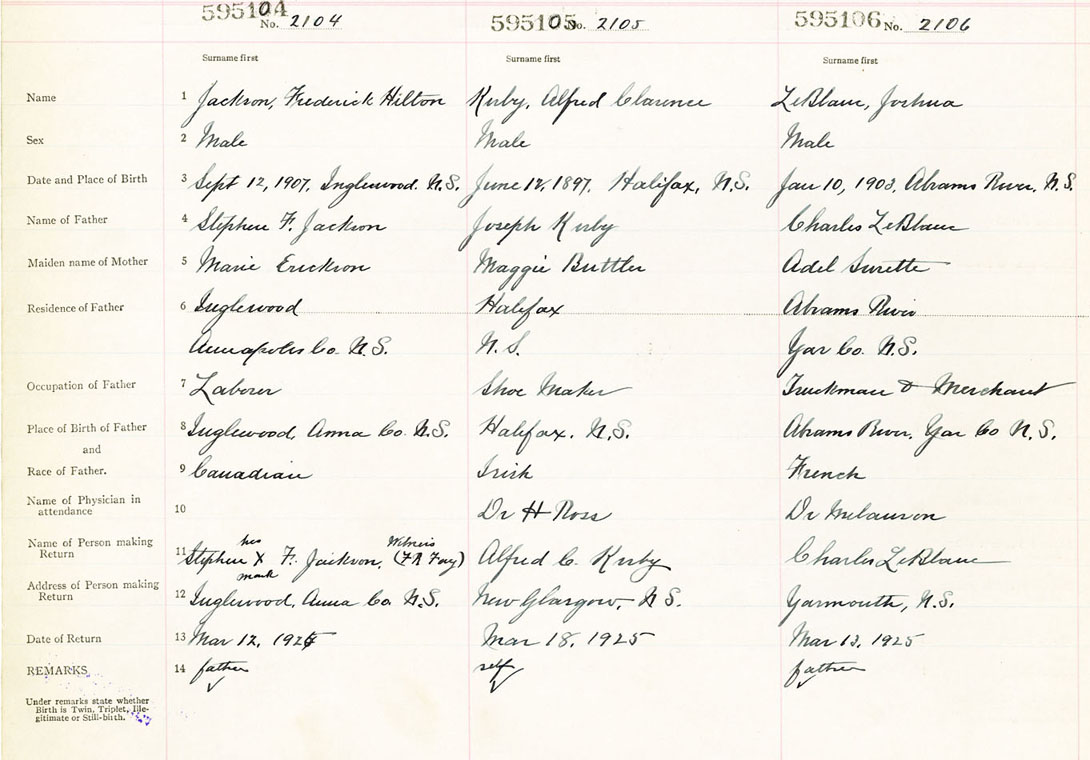 595104 No. 2104 595105 No. 2105 595106 No. 2106
Surname first Surname first Surname first
Name 1 Jackson, Frederick Hilton Kirby, Alfred Clarence LeBlanc, Joshua
Sex 2 Male Male Male
Date and Place of Birth 3 Sept 12, 1907, Inglewood. N.S. June 12, 1897, Halifax, N.S. Jan 10, 1903, Abrams River, N.S.
Name of Father 4 Stephen F. Jackson Joseph Kirby Charles LeBlanc
Maiden name of Mother 5 Marie Erickson Maggie Buttler Adel Surette
Residence of Father 6 Inglewood Halifax Abrams River
Annapolis Co. N.S. N.S. Yar Co. N.S.
Occupation of Father 7 Laborer Shoe Maker Truckman & Merchant
Place of Birth of Father 8 Inglewood, Anna Co. N.S. Halifax. N.S. Abrams River, Yar Co N.S.
and
Race of Father. 9 Canadian Irish French
Name of Physician in
attendance 10 Dr H Ross Dr Melanson
Name of Person making his Witness
Return 11 Stephen X F. Jackson, (F R Fay) Alfred C. Kirby Charles LeBlanc
mark
Address of Person making
Return 12 Inglewood, Anna Co. N.S. New Glasgow, N.S. Yarmouth, N.S.
Date of Return 13 Mar 12, 1925 Mar 18, 1925 Mar 13, 1925
REMARKS 14 father self father
Under remarks state whether
Birth is Twin, Triplet, Ille-
gitimate or Still-birth.